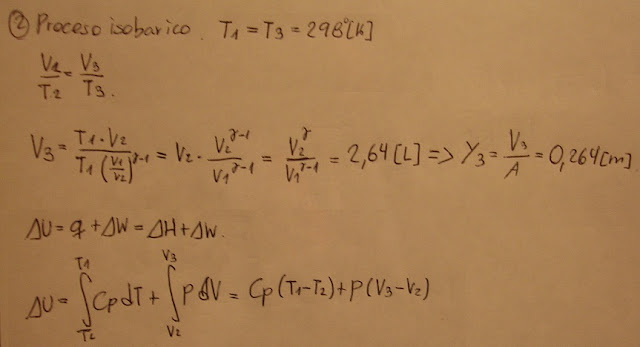 ② Proceso isobarico. T1 = T3 = 298°[K]
V2/T2 = V3/T3.
V3 = T1·V2 / T1(V1/V2)^γ-1 = V2 · V2^γ-1 / V1^γ-1 = V2^γ / V1^γ-1 = 2,64[L] => Y3 = V3/A = 0,264[m]
ΔU = q + ΔW = ΔH + ΔW.
ΔU = ∫T2^T1 Cp dT + ∫V2^V3 P dV = Cp(T1-T2) + P(V3-V2)